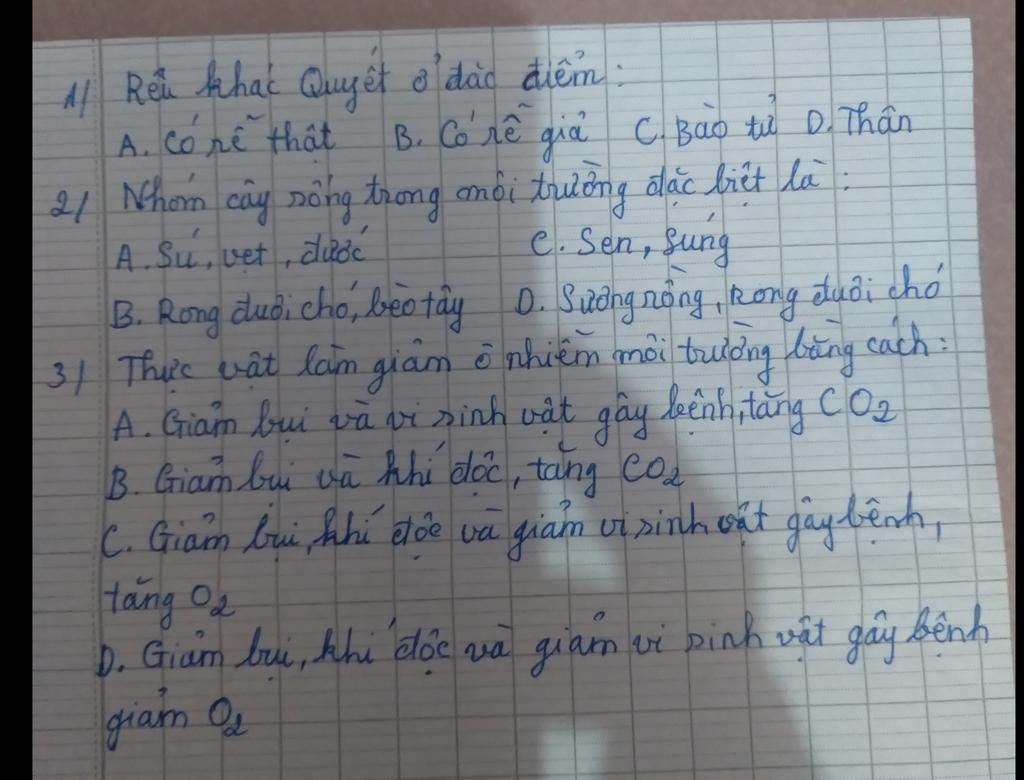 1/ Rêu khác Quyết ở đặc điểm:
A. Có rễ thật B. Có rễ giả C. Bào tử D. Thân
2/ Nhóm cây sống trong môi trường đặc biệt là:
A. Sú, vẹt, đước C. Sen, súng
B. Rong đuôi chó, bèo tây D. Sương rồng, Rong đuôi chó
3/ Thực vật làm giảm ô nhiễm môi trường bằng cách:
A. Giảm bụi và vi sinh vật gây bệnh, tăng CO2
B. Giảm bụi và khí độc, tăng CO2
C. Giảm bụi, khí độc và giảm vi sinh vật gây bệnh,
tăng O2
D. Giảm bụi, khí độc và giảm vi sinh vật gây bệnh
giảm O2